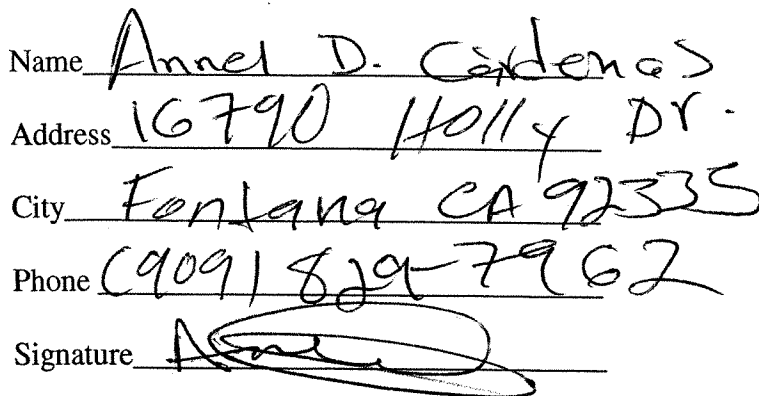 Name Annel D. Cárdenas
Address 16790 Holly Dr.
City Fontana CA 92335
Phone (909) 829-7962
Signature